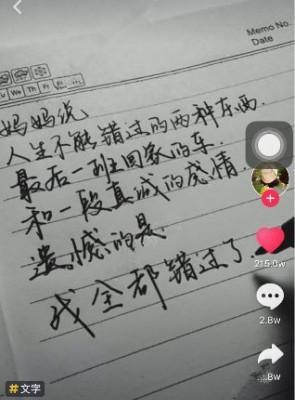 Memo No.
Date
u We Th Fr
妈妈说
人生不能错过的两种东西.
最后一班回家的车.
和一段真诚的感情.
遗憾的是
我全都错过了.
215.0w
2.8w
.8w
#文字